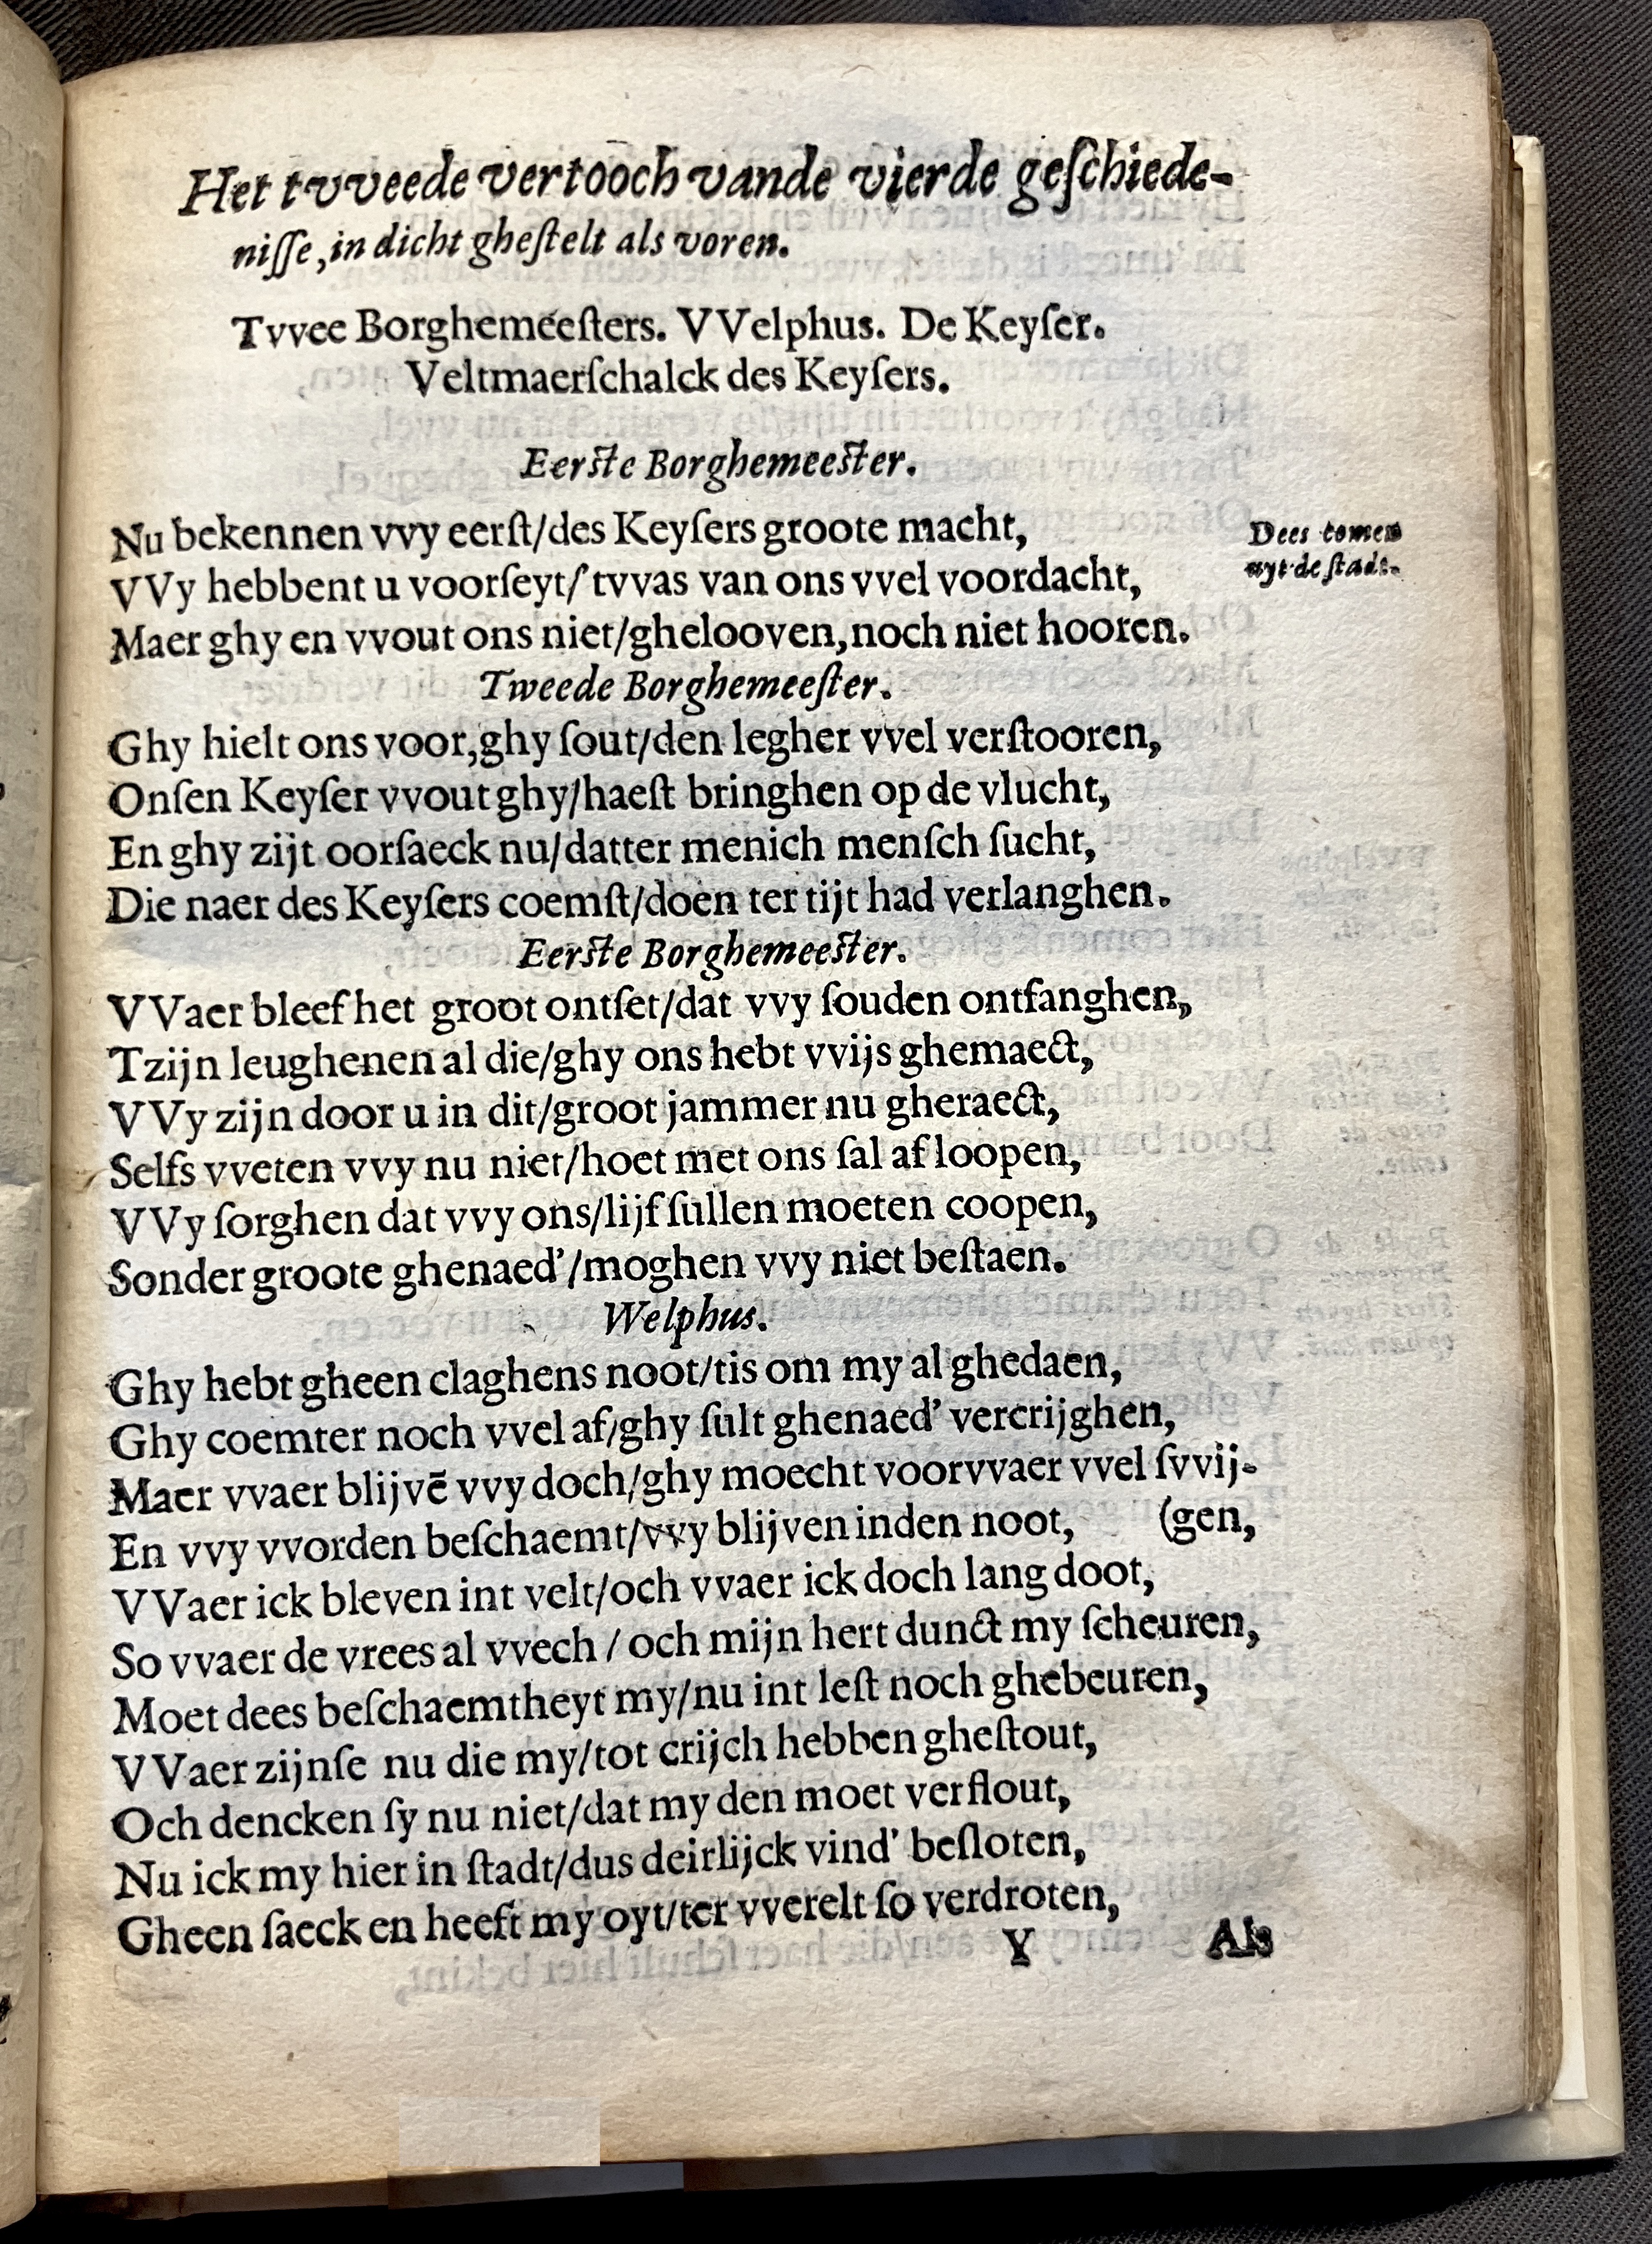 Het tvveede vertooch vande vierde geſchiede-
niſſe, in dicht gheſtelt als voren.
Tvvee Borghemeeſters. VVelphus. De Keyſer.
Veltmaerſchalck des Keyſers.
Eerſte Borghemeeſter.
Nu bekennen vvy eerſt/des Keyſers groote macht,
Dees comen
uyt de ſtadt.
VVy hebbent u voorſeyt/'tvvas van ons vvel voordacht,
Maer ghy en vvout ons niet/ghelooven, noch niet hooren.
Tweede Borghemeeſter.
Ghy hielt ons voor, ghy ſout/den legher vvel verſtooren,
Onſen Keyſer vvout ghy/haeſt bringhen op de vlucht,
En ghy zijt oorſaeck nu/datter menich menſch ſucht,
Die naer des Keyſers coemſt/doen ter tijt had verlanghen.
Eerſte Borghemeeſter.
VVaer bleef het groot ontſet/dat vvy ſouden ontfanghen,
Tzijn leughenen al die/ghy ons hebt vvijs ghemaect,
VVy zijn door u in dit/groot jammer nu gheraect,
Selfs vveten vvy nu niet/hoet met ons ſal af loopen,
VVy ſorghen dat vvy ons/lijf ſullen moeten coopen,
Sonder groote ghenaed'/moghen vvy niet beſtaen.
Welphus.
Ghy hebt gheen claghens noot/tis om my al ghedaen,
Ghy coemter noch vvel af/ghy ſult ghenaed' vercrijghen,
Maer vvaer blijvē vvy doch/ghy moecht voorvvaer vvel ſvvij-
En vvy vvorden beſchaemt/vvy blijven inden noot, (gen,
VVaer ick bleven int velt/och vvaer ick doch lang doot,
So vvaer de vrees al vvech / och mijn hert dunct my ſcheuren,
Moet dees beſchaemtheyt my/nu int leſt noch ghebeuren,
VVaer zijnſe nu die my/tot crijch hebben gheſtout,
Och dencken ſy nu niet/dat my den moet verflout,
Nu ick my hier in ſtadt/dus deirlijck vind' beſloten,
Gheen ſaeck en heeft my oyt/ter vverelt ſo verdroten,
Y Als